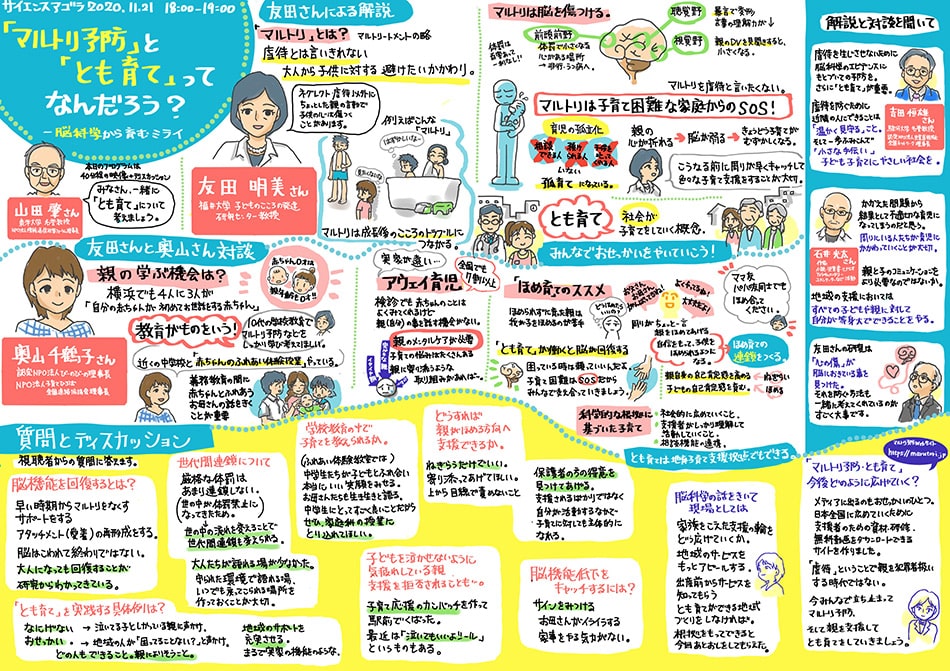 サイエンスアゴラ 2020.11.21 18:00-19:00
「マルトリ予防」と
「とも育て」って
なんだろう?
-脳科学から育むミライ
本日のプログラムは
みなさん、一緒に
「とも育て」について
考えましょう。
山田 肇さん
東洋大学 名誉教授
友田さんによる解説
「マルトリ」とは? マルトリートメントの略
虐待とは言いきれない
大人から子供に対する避けたいかかわり。
ネグレクト・虐待以外に
ちょっとした親の言動で
子供の心は傷つく
ことがあります。
友田 明美さん
福井大学 子どものこころの発達
研究センター教授
例えばこんな
「マルトリ」
マルトリは成長後のこころのトラブルに
つながる。
マルトリは脳を傷つける。
聴覚野
暴言で変形
言葉の理解力が↓
前頭前野
体罰で小さくなる
視覚野
親のDVを見聞きすると、
小さくなる。
マルトリを虐待と言いたくない。
マルトリは子育て困難な家庭からのSOS!
育児の孤立化
いない
孤育てになっている。
親の
心が折れる
脳が弱る
こうなる前に周りが早くキャッチして
色々な子育て支援をすることが大切。
とも育て
社会が
子育てをしていく概念。
みんなでおせっかいをやいていこう!
解説と対談を聞いて
「温かく見守る」こと。
「小さな手伝い」
子ども子育てにやさしい社会を。
吉田 恒雄さん
かかえた問題から
結果として不適切な育児に
なってしまうのだと思う。
周りにいる人たちが育児に
かかわっていくことが大切。
石井 光太さん
作家
親と子のコミュニケーションを
より必要なのではないか。
地域の支援においては
すべての子どもや親に対して
自分が等身大でできることをやる。
友田さんの研究は
「心の傷」が
脳における傷であると
見つけた。
それを防ぐ方法を
一緒に考えてくれているのが
すごく大事です。
友田さんと奥山さん対談
親の学ぶ機会は?
横浜でも4人に3人が
「自分の赤ちゃんが初めてお世話をする赤ちゃん」
教育がものをいう!
10代の学校教育で
マルトリ予防などを
しっかり学び考えてほしい。
近くの中学校と「赤ちゃんのふれあい体験授業」やっている。
奥山 千鶴子さん
認定NPO法人びーのびーの理事長
NPO法人子育てひろば
全国連絡協議会理事長
義務教育の間に
赤ちゃんとふれあい
お母さんの話をきく
ことが重要
実家が遠い…
アウェイ育児
全国でも
7割以上
検診でも赤ちゃんのことは
よくきれくれるけど
親(自分)の事を話す機会がない。
親のメンタルケアが必要
子育ての悩みはたくさんある
親に寄り添うような
取り組みがあれば…
ほめ育てのススメ
ほめられずに育った親は
我が子をほめるのが苦手
周りがちょっと一言
親をほめてあげる
自信をもって、子供を
ほめられるように
なる。
ママ友
パパ夫同士でも
ほめ合って
ください。
ほめ育ての
連鎖をつくる。
親自身の自己肯定感を高める
子どもの自己肯定感も育む。
ねぎらい
ほめる
「とも育て」が働くと脳が回復する
困っている時は頼っていいんだよ。
子育て困難はSOSだから
みんなで支え合っていきましょう。
科学的な根拠に
基づいた子育て
社会的に広めていくこと。
支援者がしっかり理解して
活動していくこと。
相談体制の連携。
とも育ては地域子育て支援拠点でもできる。
質問とディスカッション
視聴者からの質問に答えます。
脳機能を回復するとは?
早い時期からマルトリをなくす
サポートをする
アタッチメント(愛着)の再形成をする。
脳はこわれて終わりではない。
大人になっても回復することが
研究からわかってきている。
「とも育て」を実践する具体例は?
なにげない → 泣いてる子どもとしかっている親に声かけ。
おせっかい。 → 地域の人が「困ってることない?」と声かけ。
どの人もできること。親によりそうこと。
地域のサポートを
充実させる。
まるで実家の機能のような。
世代間連鎖について
厳格な体罰は
あまり連鎖しない。
(世の中が体罰禁止に)
なってきたため。
世の中の流れを変えることで
世代間連鎖も変えられる。
大人たちが語れる場が少なかった。
守られた環境で語れる場、
いつでも来てこられる場所を
作っておくことが大切。
学校教育の中で
子育てを教えられるか。
(ふれあい体験教室では)
中学生たちが子どもとふれ合い
本当にいい笑顔をみせる。
お母さんたちも生き生きと語る。
中学生にとってすごく良いことだから
ぜひ、家庭科の授業に
とり入れてほしい。
子どもを泣かせないように
気疲れしている親
支援を拒否されることも…。
子育て応援のカンバッチを作って
駅前でくばった。
最近は「泣いてもいいよシール」
というものもある。
どうすれば
親がほめる方向へ
支援できるか。
ねぎらうだけでいい。
寄り添ってあげてほしい。
上から目線で責めないこと
保護者のうつ得意を
見つけてあげる。
支援されるばかりではなく
自分が活躍するなかで
子育てに対しても主体的に
なれる。
脳機能低下を
キャッチするには?
サインをみつける
お母さんがイライラする
家事をやる気がない。
脳科学の話をきいて
現場としては
家族をこえた支援の輪を
どう広げていくか。
地域のサービスを
もっとアピールする。
出産前からサービスを
知ってもらう
とも育てができる地域
づくりをしなければ。
根拠をもってできると
今日あとおしをしてもらった。
マルトリ予防WEBサイト
https://marutori.jp
マルトリ予防・とも育て
今後どのように広げていく?
メディアに出るのもおせっかいのひとつ。
日本全国に広めていくために
支援者のための資材・研修、
無料動画をダウンロードできる
サイトを作りました。
「虐待」ということで親を犯罪者扱い
する時代ではない。
今みんなで立ち止まって
マルトリ予防、
そして親を支援して
とも育てをしていきましょう。